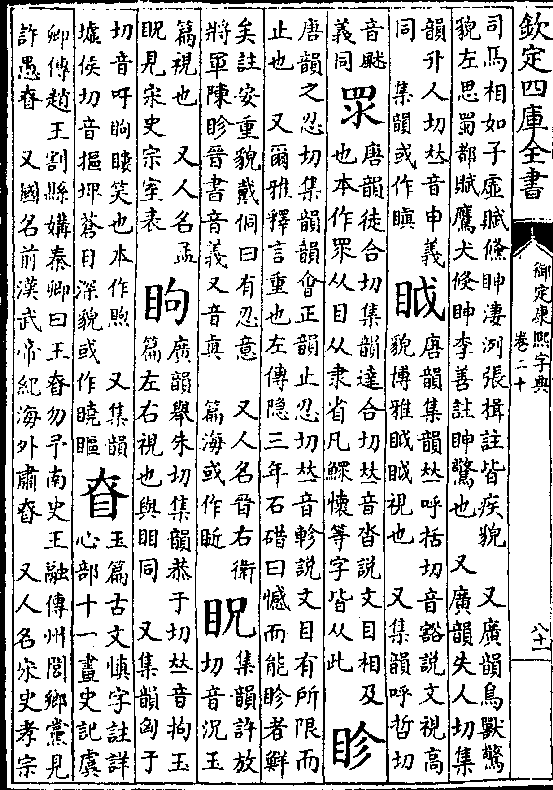 欽定四庫全書
御定康熙字典
卷二十
司馬相如子虛賦儵眒凄浰張揖註皆疾貌 又廣韻鳥獸驚
貌左思蜀都賦鷹犬倐眒李善註眒驚也 又廣韻失人切集
韻升人切𠀤音申義
同 集韻或作瞋
眓
唐韻集韻𠀤呼括切音豁說文視高
貌博雅眓眓視也 又集韻呼哲切
音䬍
義同
眔
唐韻徒合切集韻達合切𠀤音沓說文目相及
也本作眾从目从隶省凡鰥懷等字皆从此
眕
唐韻之忍切集韻韻會正韻止忍切𠀤音軫說文目有所限而
止也 又爾雅釋言重也左傳隱三年石碏曰憾而能眕者鮮
矣註安重貌戴侗曰有忍意 又人名晉右衛
將軍陳眕晉書音義又音真 篇海或作
眖
集韻許放
切音況玉
篇視也 又人名孟
眖見宋史宗室表
眗
廣韻舉朱切集韻恭于切𠀤音拘玉
篇左右視也與䀠同 又集韻匈于
切音吁眗瞜笑也本作煦 又集韻
墟侯切音摳埤蒼目深貌或作瞘
眘
玉篇古文慎字註詳
心部十一畫史記虞
卿傳趙王割縣媾秦卿曰王眘勿予南史王融傳州閭鄉黨見
許愚眘 又國名前漢武帝紀海外肅眘 又人名宋史孝宗